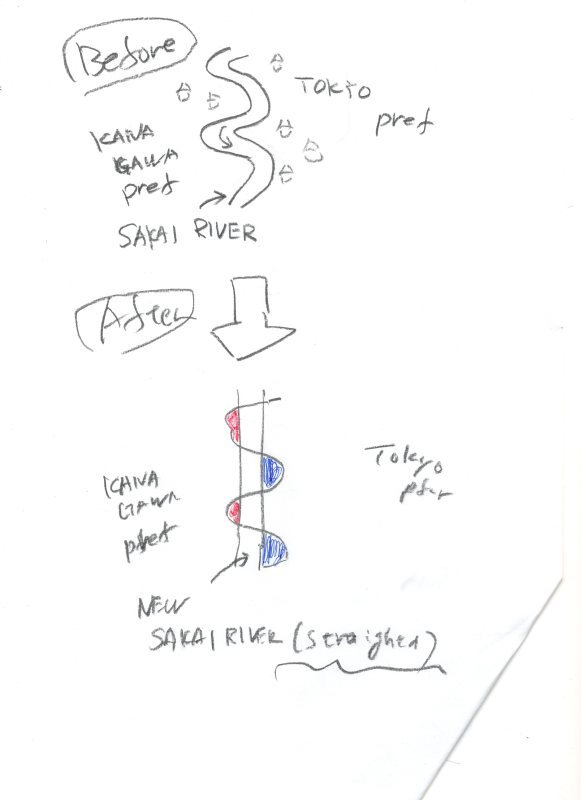 Before
TOKIO
pref
KANA
GAWA
pref
SAKAI RIVER
After
Tokyo
KANA
GAWA
pref
NEW
SAKAI RIVER (straighted)